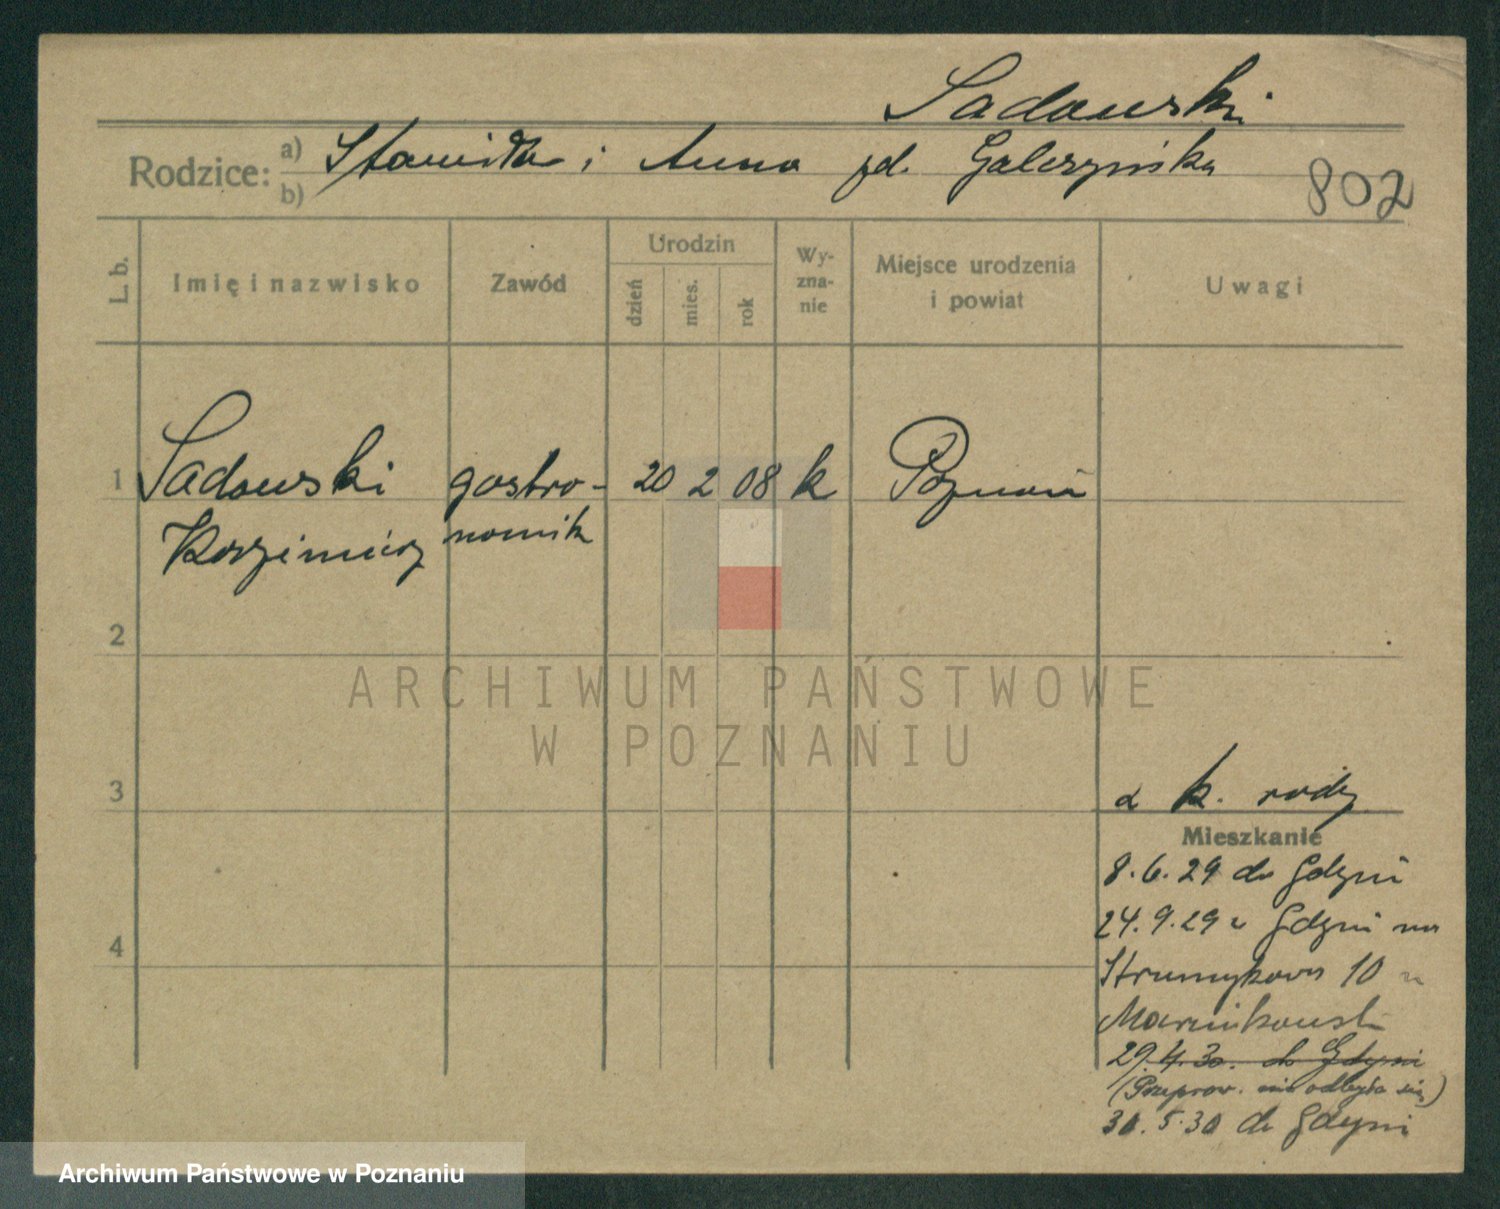 Sadowski
Rodzice: a) Stanisław i Anna zd. Galczyńska
b)
802
L. b.
Imię i nazwisko
Zawód
Urodzin
dzień
mies.
rok
Wy-
zna-
nie
Miejsce urodzenia
i powiat
Uwagi
1 Sadowski gastro- 20 2 08 k Poznań
Kazimierz nomik
2
ARCHIWUM PAŃSTWOWE
W POZNANIU
3
z k. rodz
Mieszkanie
8.6.29 do Gdyni
24.9.29 z Gdyni na
Strumykowa 10 u
4
29.4.30. do Gdyni
(Przeprow. nie odbyła się)
30.5.30 do Gdyni
Archiwum Państwowe w Poznaniu